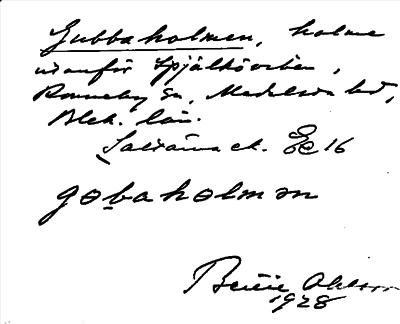 Gubbaholmen, holme
utanför Spjälköviken,
Ronneby sn, Medelsta hd,
Blek. län.
ek. Ec 16
gọbaholmən
Bertil Ohlsson
1928